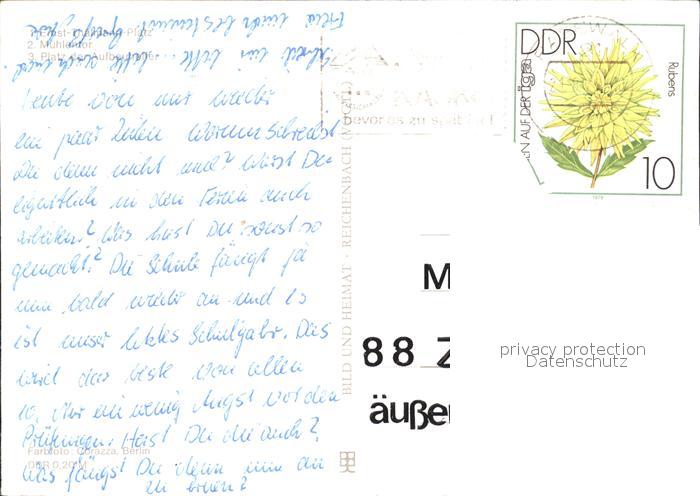 1. Ernst-Thälmann-Platz
2. Mühlentor
3. Platz der Aufbauhelfer
Heute von mir wieder
ein paar Zeilen. Warum schreibst
Du denn nicht mal? Wirst Du
eigentlich in den Ferien auch
arbeiten? Was hast Du sonst so
gemacht? Die Schule fängt ja
nun bald wieder an und es
ist unser letztes Schuljahr. Das
wird das beste von allen
10. Nur ein wenig Angst vor den
Prüfungen. Hast Du die auch?
Was fängst Du denn nun an
zu
Farbfoto: Corazza, Berlin
DDR 0,20 M
BILD UND HEIMAT · REICHENBACH (VOGTL)
bevor es zu spät ist
DDR
Rubens
10
1979
M
88 Z
äuße
privacy protection
Datenschutz